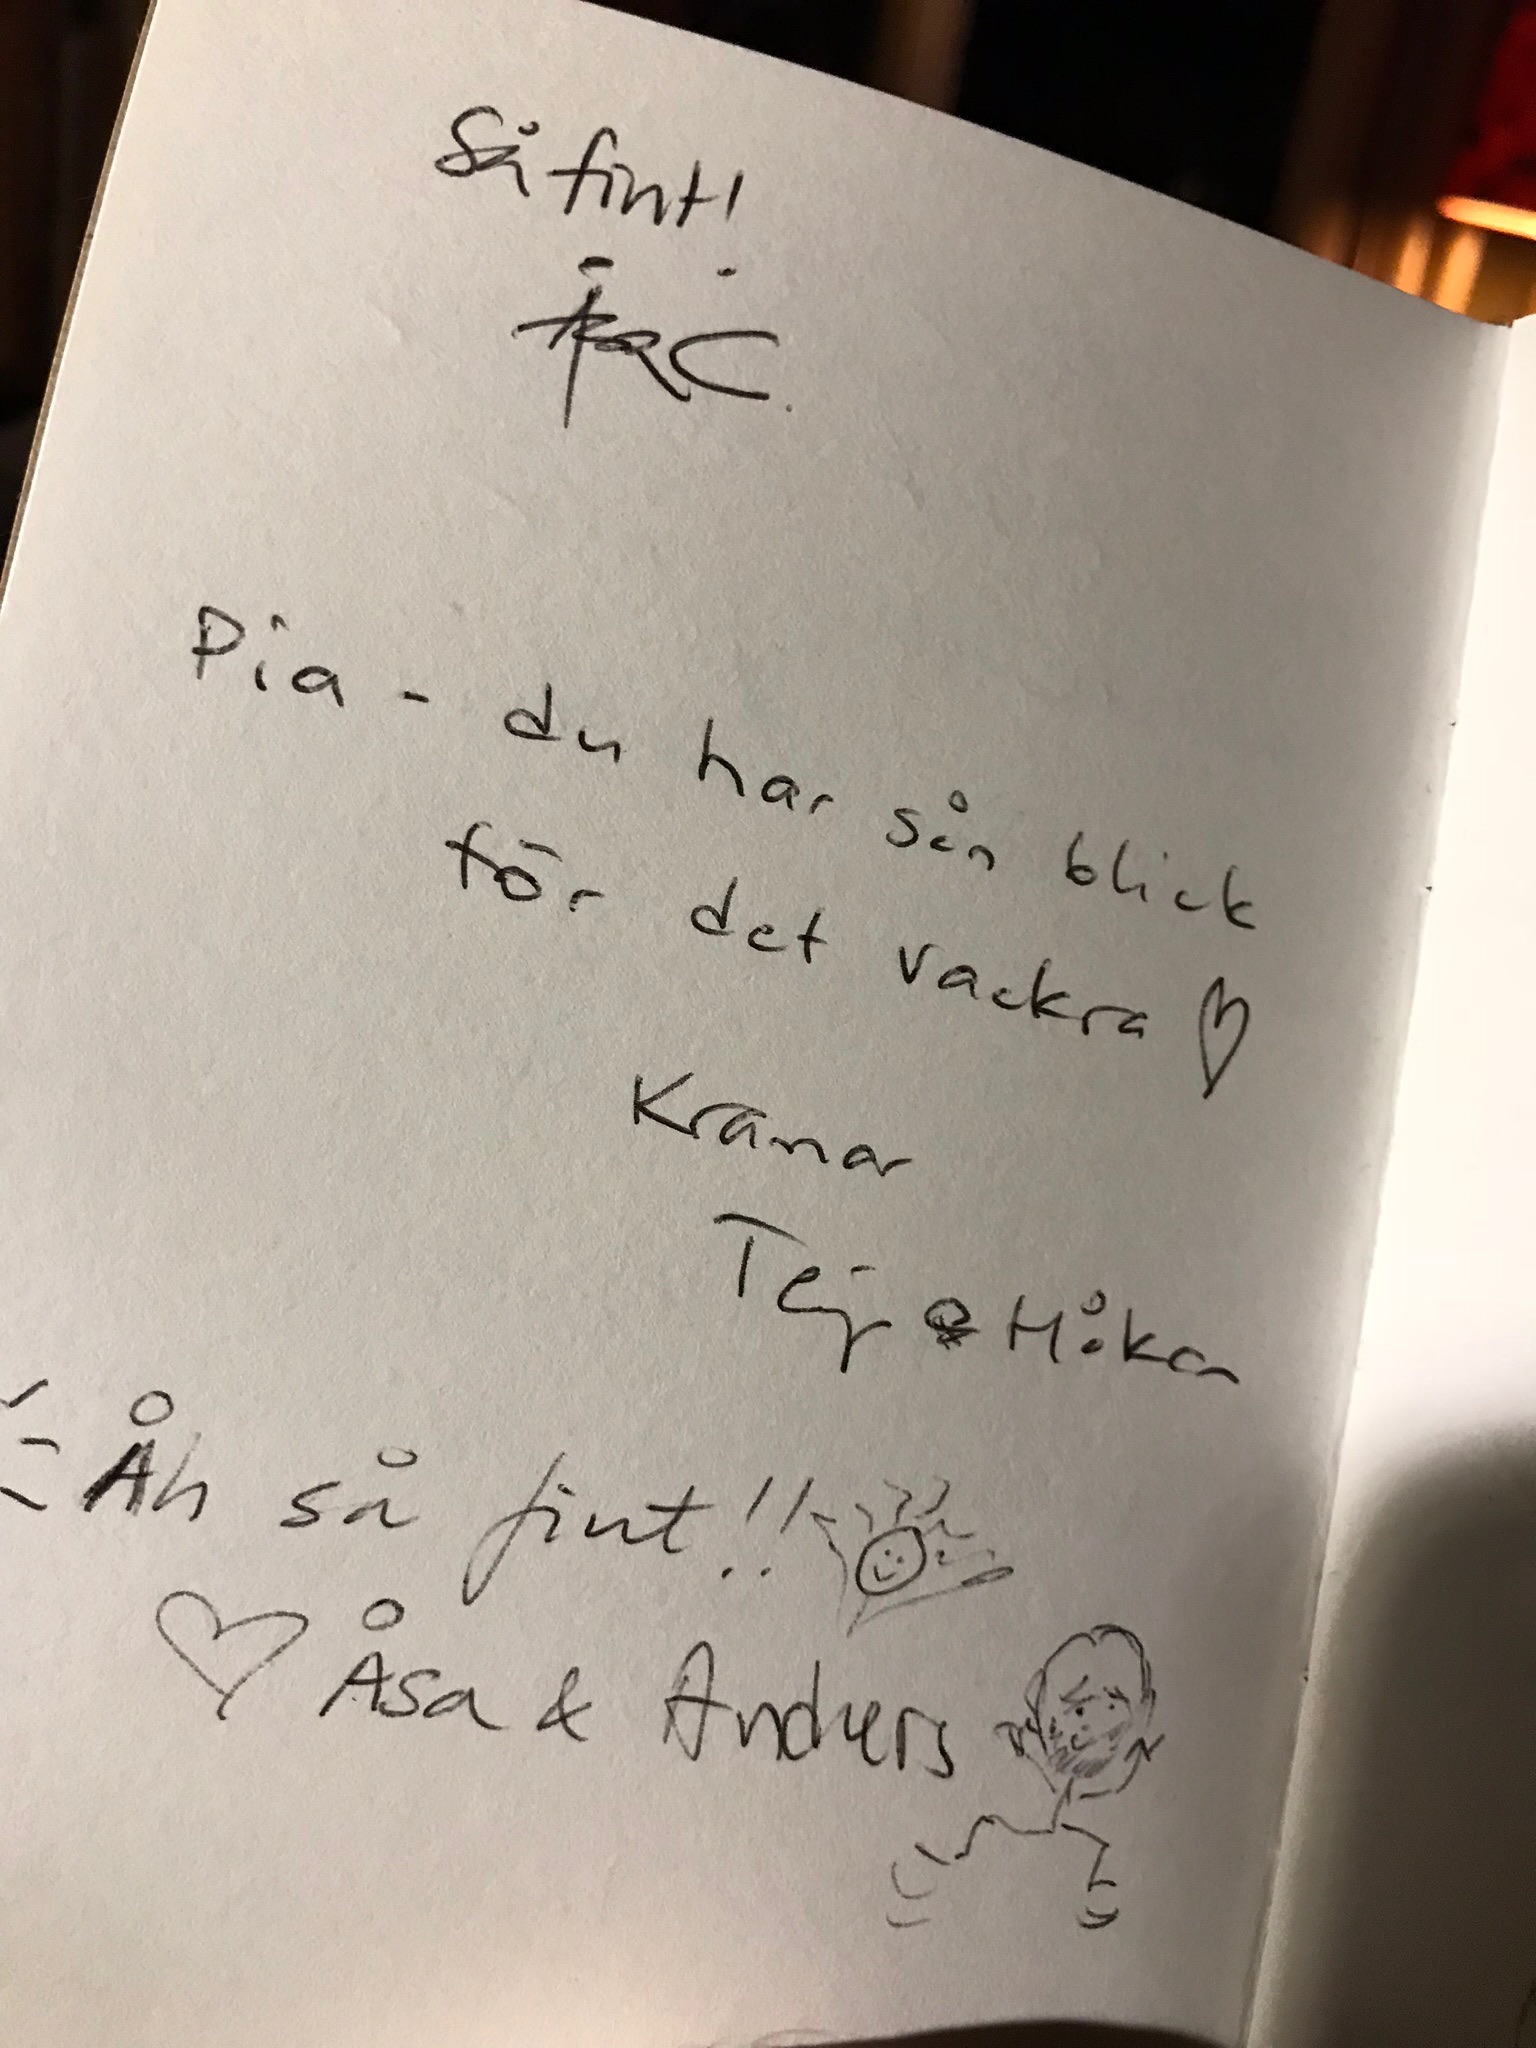 Så fint!
Pia - du har sån blick
för det vackra ♡
Kramar
Tejy & Håkan
Åh så fint!!
♡ Åsa & Anders